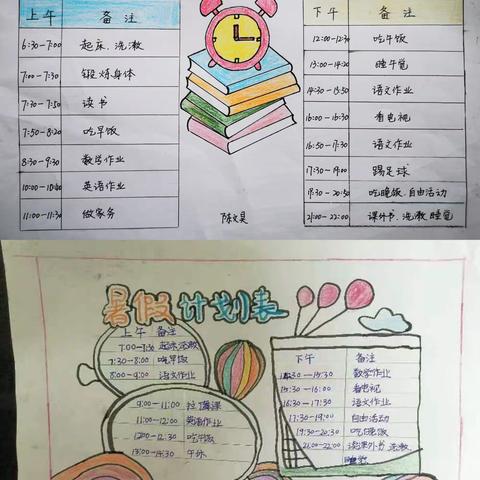 上午 备注
6:30-7:00 起床、洗漱
7:00-7:30 锻炼身体
7:30-7:50 读书
7:50-8:20 吃早饭
8:30-9:30 数学作业
10:00-10:40 英语作业
11:00-11:30 做家务
下午 备注
12:00-12:30 吃午饭
13:00-14:20 睡午觉
14:30-15:50 语文作业
16:00-16:30 看电视
16:50-17:30 语文作业
17:30-19:00 踢足球
19:30-20:50 吃晚饭、自由活动
21:00-22:00 课外书、洗漱、睡觉
暑假计划表
上午 备注
7:00-7:30 起床洗漱
7:30-8:00 吃早饭
8:00-9:00 语文作业
9:00-11:00
11:00-12:00 英语作业
12:00-12:30 吃午饭
13:00-14:30 午休
下午 备注
14:30-15:30 数学作业
15:30-16:00 看电视
16:30-17:30 语文作业
17:30-19:00 自由活动
19:30-20:30 吃晚饭
21:00-22:00 读课外书、洗漱、
睡觉